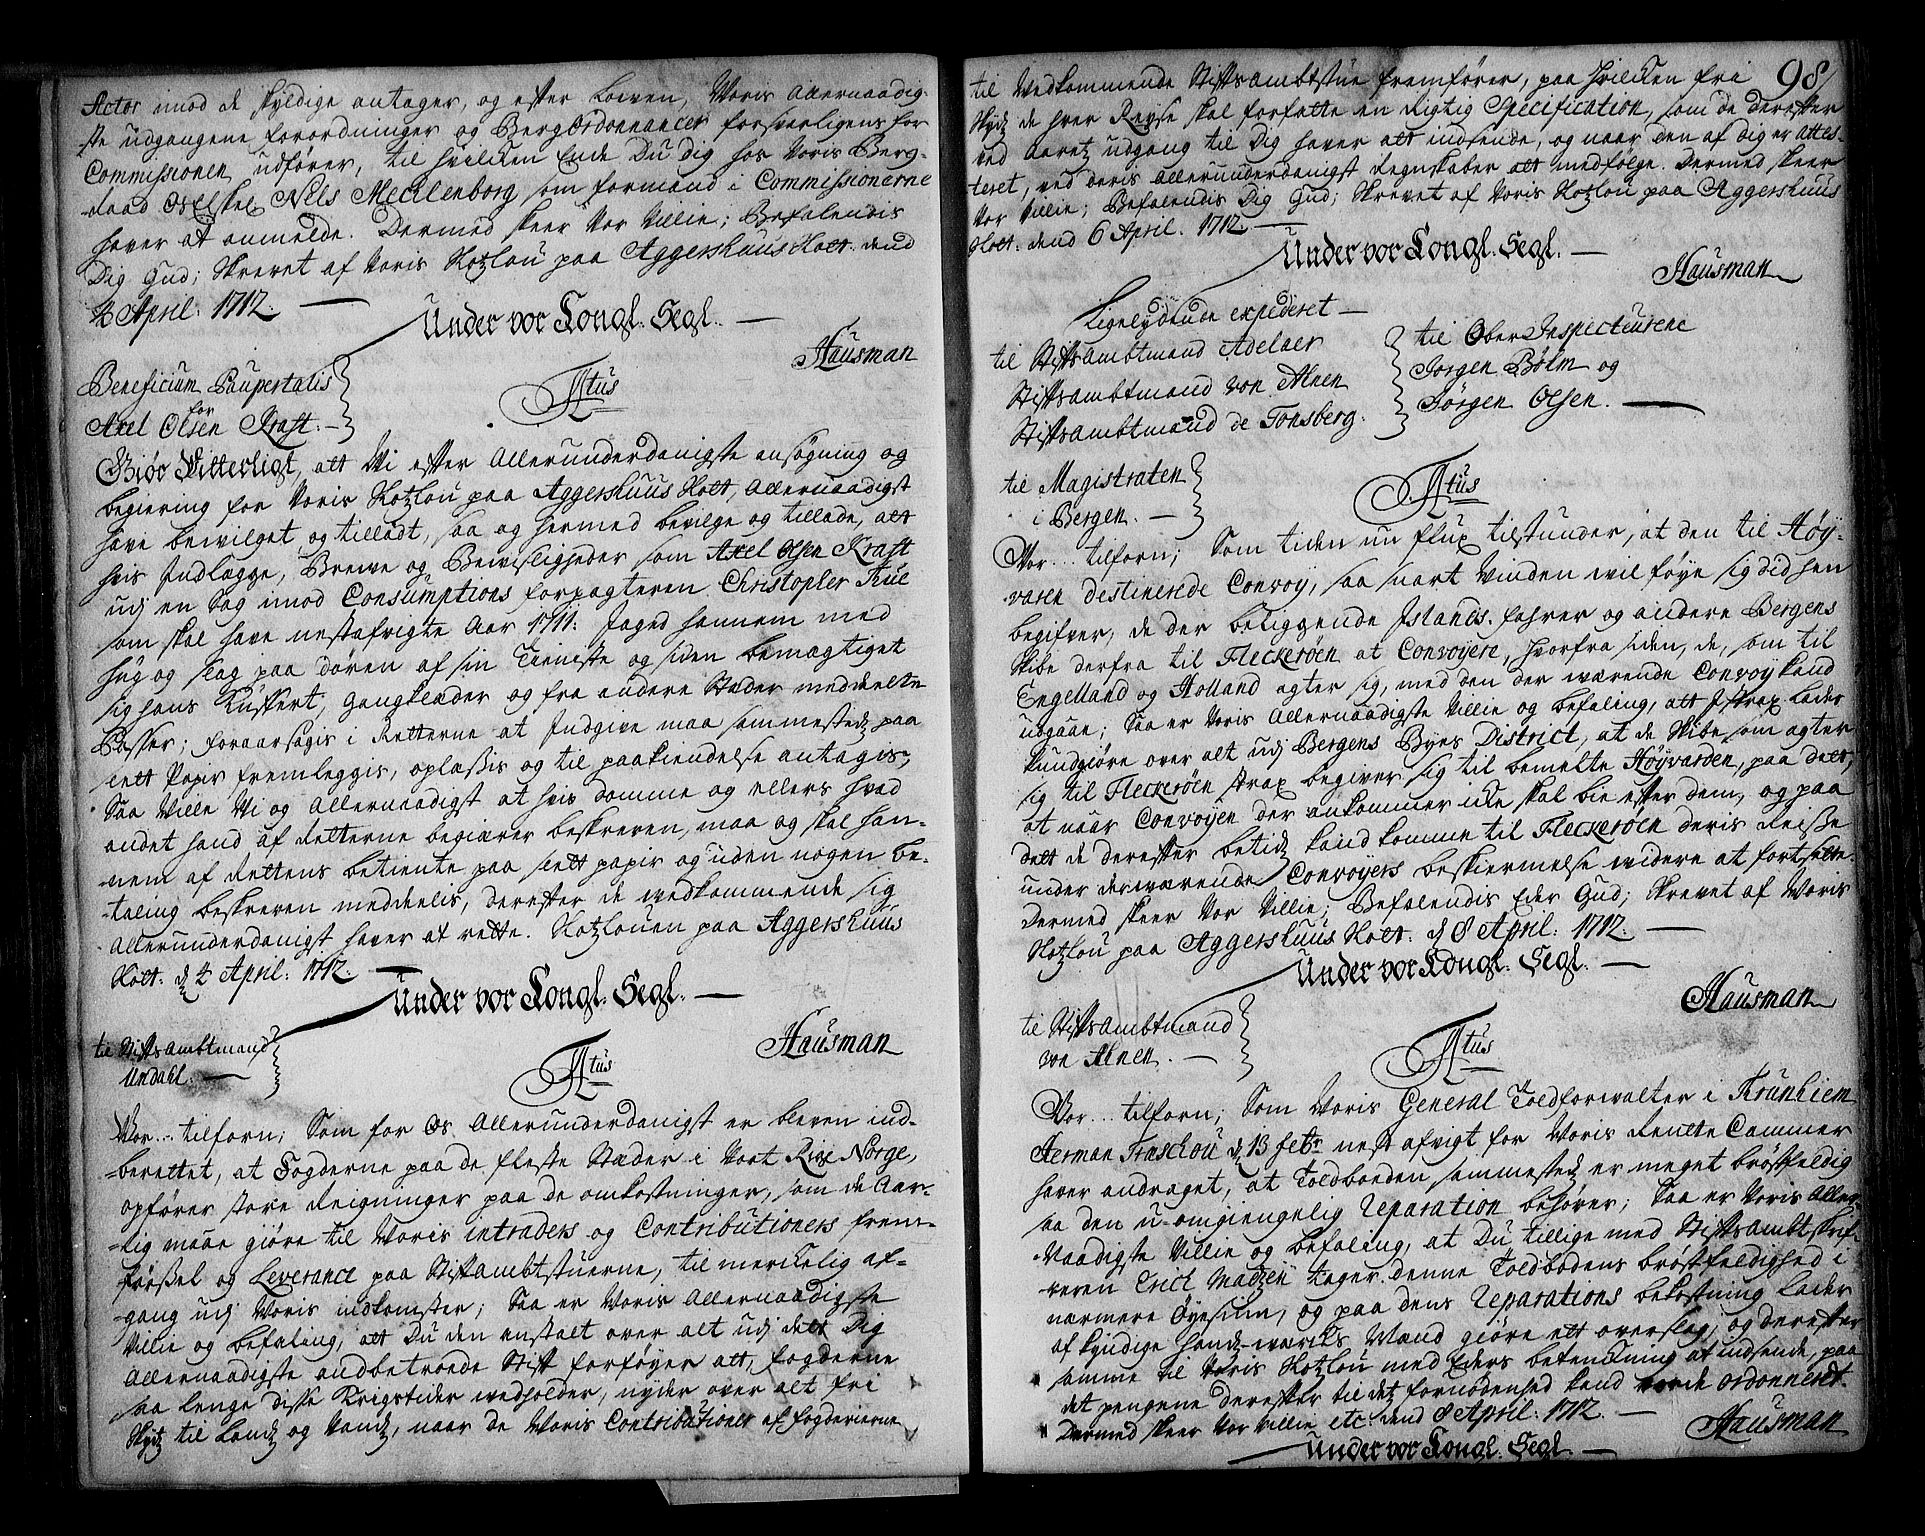 Actor imod de skyldige antager, og efter Loeven, Voris Allernaadig-
ste udgangene forordninger og BergOrdonnancer forsvarligens for
Commissionen udfører, til hvilcken Ende Du dig hos Voris Berg-
raad Os Elskel. Nels Mechlenborg som formand i Commissionerne
haver at anmelde. Dermed skeer Vor Villie; Befalendis
Dig Gud; Skrevet af Voris Slotzlou paa Aggershuus Slott. dend
2 April. 1712.
Under vor Kongl. Segl.
Hausman
Beneficium Paupertatis
for
Axel Olsen Kraft.
Ntus
Giør Vitterligt, att Vi efter Allerunderdanigste ansøgning og
begiering for Voris Slotzlou paa Aggershuus Slott, Allernaadigst
have bevilget og tilladt, saa og hermed bevilge og tillade, att
hvis Indlægge, Breve og Bevisligheder som Axel Olsen Kraft
udj en Sag imod Consumptions forpagteren Christopher Rue
som skal have nestafvigte Aar 1711. Jaged hannem med
hug og slag paa Døren af sin Tieniste og siden bemægtiget
sig hans Kuffert, Gangkleder og fra andere Stæder meddeelte
Passer; foraarsagis i Retterne at Indgive maa sammestedz paa
slett Papir fremleggis, oplæsis og til paakiendelse antagis;
Saa Ville Vi og Allernaadigst at hvis domme og ellers hvad
andet hand af Retterne begiærer beskreven, maa og skal han-
nem af Rettens betiente paa slett papir og uden nogen be-
taling beskreven meddeelis, derefter de vedkommende sig
Allerunderdanigst haver at rette. Slotzlouen paa Aggershuus
Slott. d. 2 April: 1712.
Under vor Kongl. Segl.
Hausman
til Stiftsambtmand
Undahl.
Ntus
Vor... tilforn; Som for Os Allerunderdanigst er bleven ind-
berettet, at Fogderne paa de fleste Stæder i Vort Rige Norge,
opfører store Reigninger paa de omkostninger, som de Aar-
lig maae giøre til Voris intraders og Contributioners frem-
førssel og Leverance paa Stiftambtstuerne, til merckelig af-
gang udj Voris indkomster; Saa er Voris Allernaadigste
Villie og befaling, att Du den anstalt over alt udj dett Dig
Allernaadigste andbetroede Stift forføyer att, fogderne
saa lenge disse Krigstider vedholder, nyder over alt fri
Skydz til Landz og Vandz, naar de Voris Contributioner af fogderierne
98
til Vedkommende Stiftsambtstue fremfører, paa hvilcken fri
Skydz de hver Reyse skal forfatte en Rigtig Specification, som de derefter
ved Aaretz udgang til Dig haver att indsende, og naar den af dig er attes-
teret, ved deris Allerunderdanigst Regnskaber att medfølge. Dermed skeer
Vor Villie; Befalendis Dig Gud; Skrevet af Voris Slotzlou paa Aggershuus
Slott. dend 6 April. 1712.
Under vor Kongl. Segl.
Hausman
Ligelydende expederet
til Stiftsambtmand Adelaer
Stiftsambtmand von Ahnen
Stiftsambtmand de Tonsberg.
til Ober Inspecteurene
Jørgen Bølm og
Jørgen Olsen.
til Magistraten
i Bergen.
Ntus
Vor... tilforn; Som tiden nu flux tilstunder, at den til Høy-
varen destinerede Convoy, saa snart Vinden vil føye sig did hen
begifver, de der beliggende Islands-fahrer og andere Bergens
Skibe derfra til Fleckerøen at Convoyere, hvorfra siden, de, som til
Engelland og Holland agter sig, med den der værende Convoy kand
udgaae; Saa er Voris Allernaadigste Villie og befaling, att I strax lader
kundgiøre over alt udj Bergens Byes District, at de Skibe, som agter
sig til Fleckerøen strax begiver sig til bemelte Høyvarden, paa dett,
at naar Convoyen der ankommer icke skal bie efter dem, og paa
dett de derefter betidz kand komme til Fleckerøen deris Reisse
under derværende Convoyers beskiermelse videre at fortsette.
Dermed skeer Vor Villie; Befalendis Eder Gud; Skrevet af Voris
Slotzlou paa Aggershuus Slott. d. 8 April. 1712.
Under vor Kongl. Segl.
Hausman
til Stiftsambtmand
von Ahnen.
Ntus
Vor... tilforn; Som Voris General Toldforwalter i Trunhiem
Herman Traschou d. 13 febr. nest afvigt for Voris Rentte Cammer
haver andraget, at Toldboeden sammestedz er meget brøstfeldig
saa den u-omgiengelig Reparation behøver; Saa er Voris Aller-
Naadigste Villie og befaling, at Du tillige med Stiftsambtskrif-
veren Erich Matzen tager denne Toldbodens brøstfeldighed i
nærmere Øyesiun, og paa dens Reparations bekostning lader
af kyndige handt-værcks Mænd giøre ett overslag; og derefter
samme til Voris Slotzlou med Eders betenckning at indsende, paa
det pengene derefter til detz fornødenhed kand vorde ordonneret.
Dermed skeer Vor Villie etc. dend 8 April. 1712.
Hausman
Under vor Kongl. Segl.